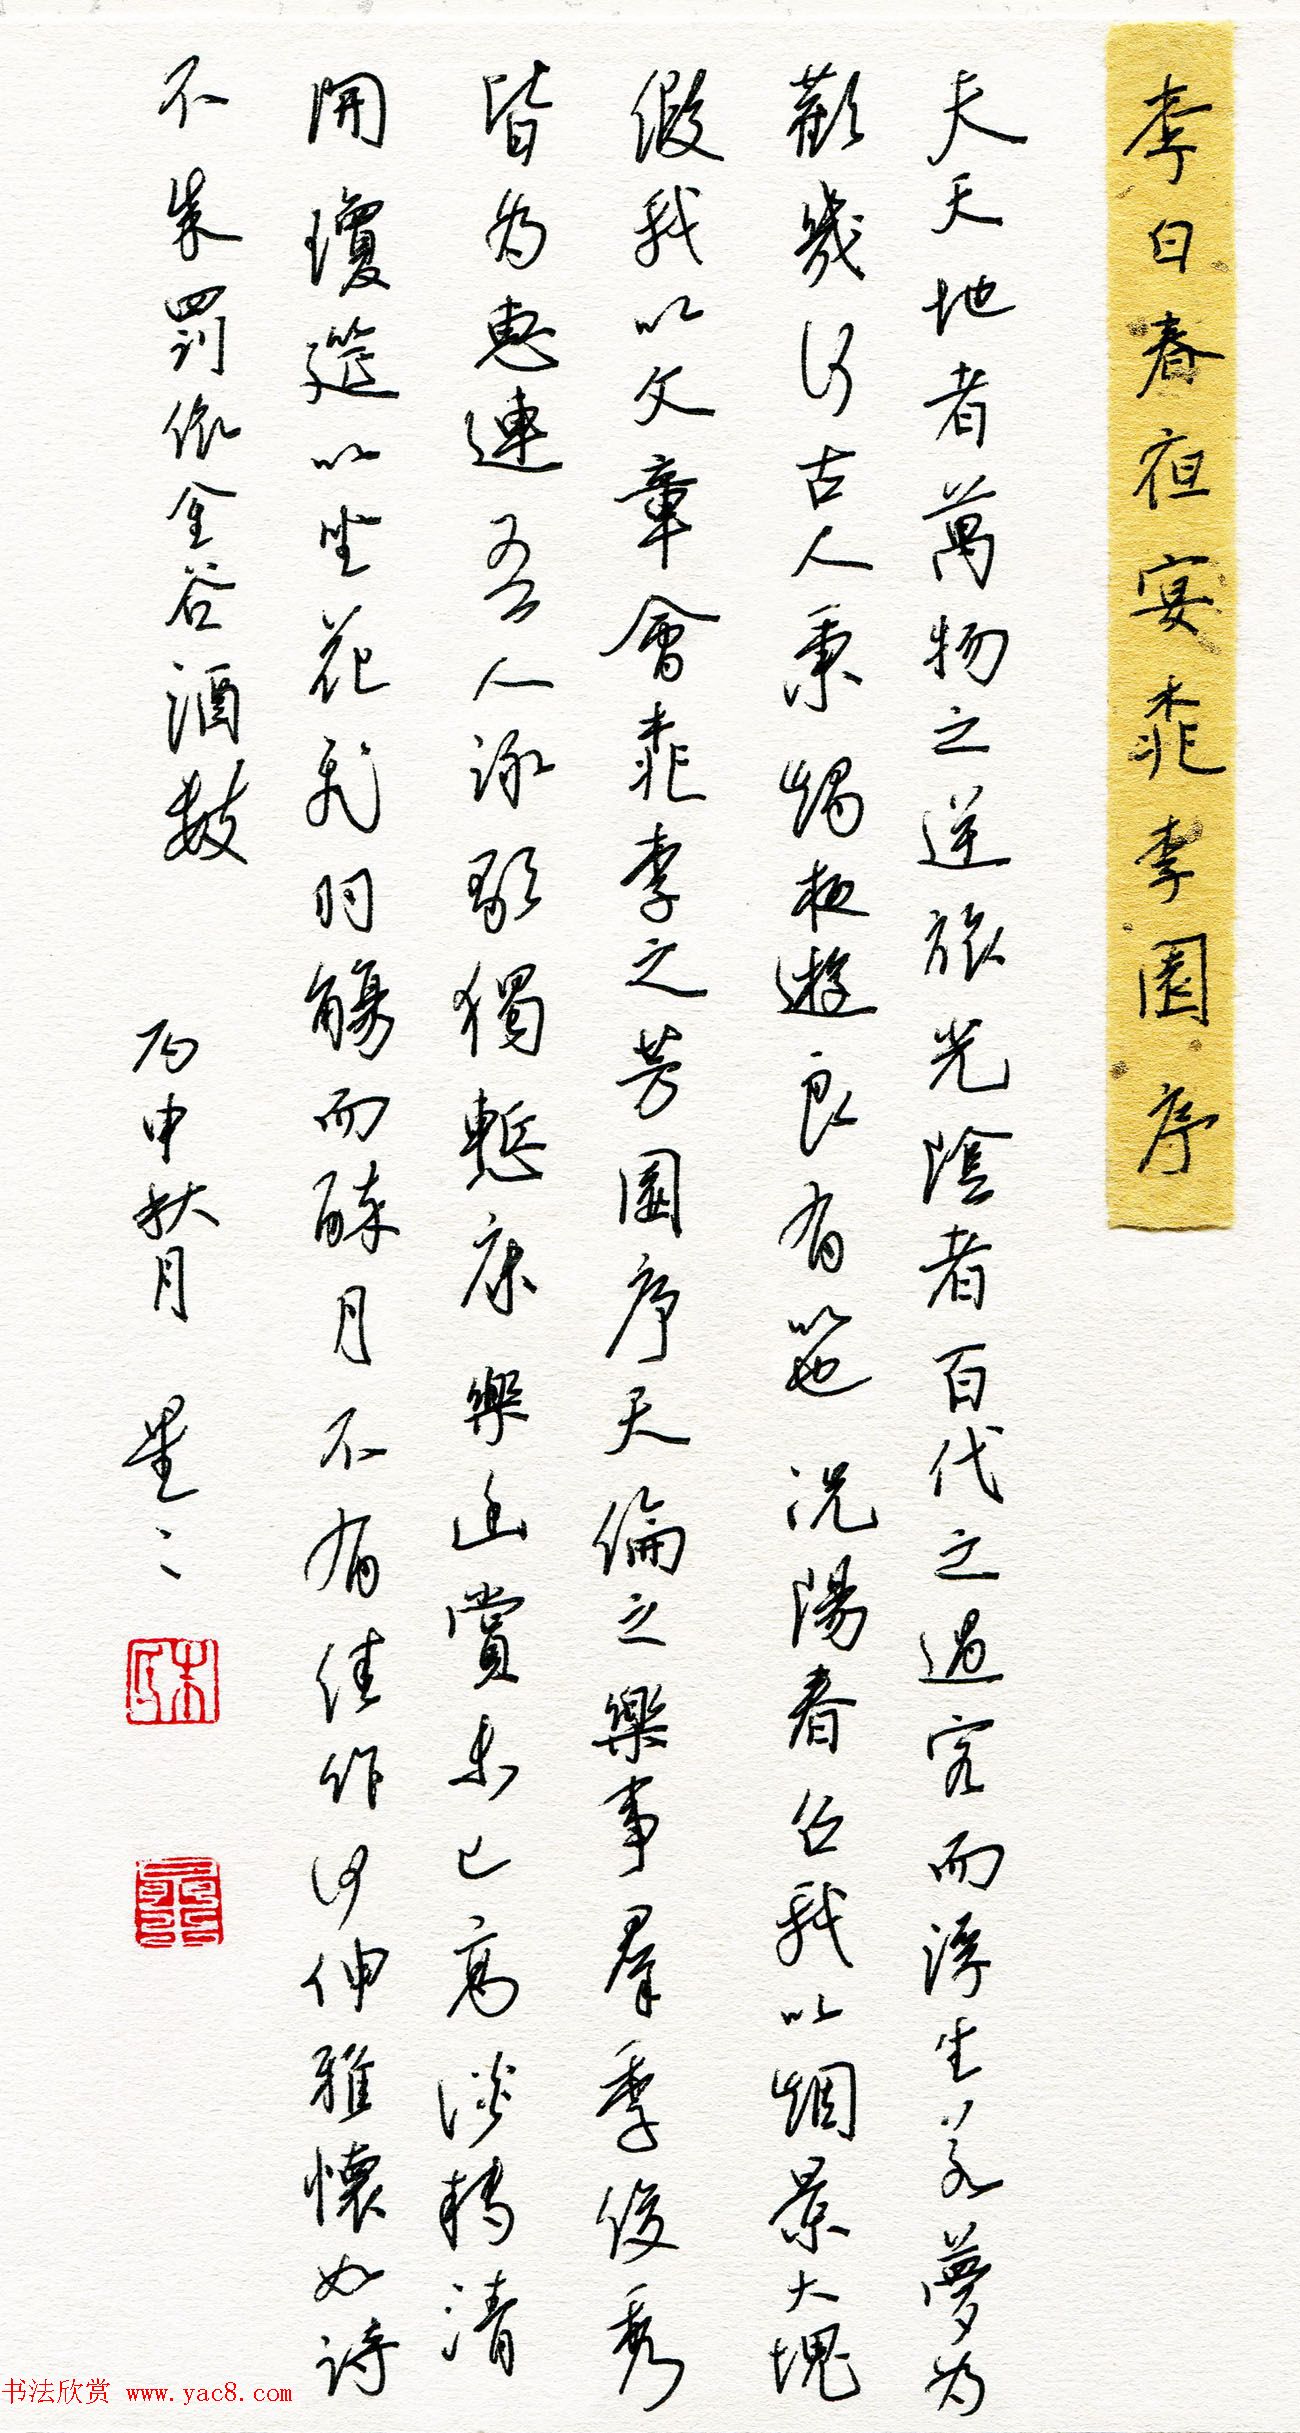 李白春夜宴桃李園序
夫天地者萬物之逆旅光陰者百代之過客而浮生若夢為
歡幾何古人秉燭夜遊良有以也況陽春召我以烟景大塊
假我以文章會桃李之芳園序天倫之樂事羣季俊秀
皆為惠連吾人詠歌獨慙康樂幽賞未已高談轉清
開瓊筵以坐花飛羽觴而醉月不有佳作何伸雅懷如詩
不成罰依金谷酒數 丙申秋月 星〻
书法欣赏 www.yac8.com